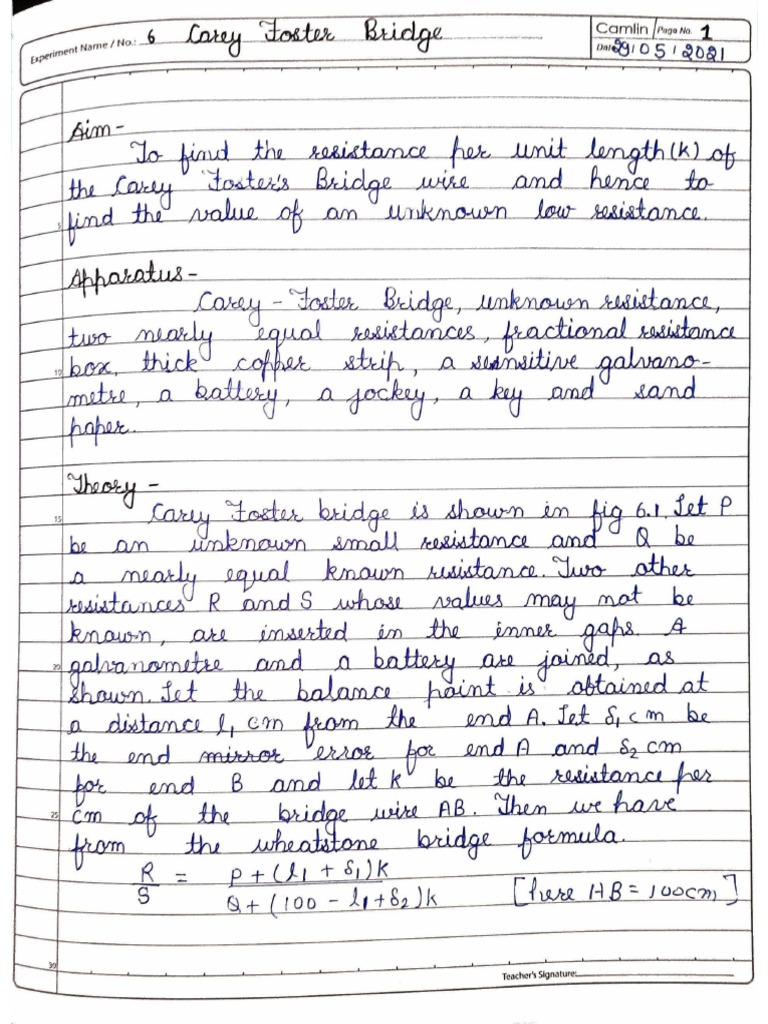 Experiment Name / No.: 6 Carey Foster Bridge
Camlin Page No. 1
Date 29/05/2021
Aim-
To find the resistance per unit length (K) of
the Carey Foster's Bridge wire and hence to
5 find the value of an unknown low resistance.
Apparatus-
Carey - Foster Bridge, unknown resistance,
two nearly equal resistances, fractional resistance
10 box, thick copper strip, a sensitive galvano-
metre, a battery, a jockey, a key and sand
paper.
Theory -
15 Carey Foster bridge is shown in fig 6.1. Let P
be an unknown small resistance and Q be
a nearly equal known resistance. Two other
resistances R and S whose values may not be
known, are inserted in the inner gaps. A
20 galvanometre and a battery are joined, as
shown. Let the balance point is obtained at
a distance l₁ cm from the end A. Let δ₁ cm be
the end mirror error for end A and δ₂ cm
for end B and let K be the resistance per
25 cm of the bridge wire AB. Then we have
from the wheatstone bridge formula.
R/S = P + (l₁ + δ₁)K / Q + (100 - l₁ + δ₂)K [here AB = 100cm]
30
Teacher's Signature: